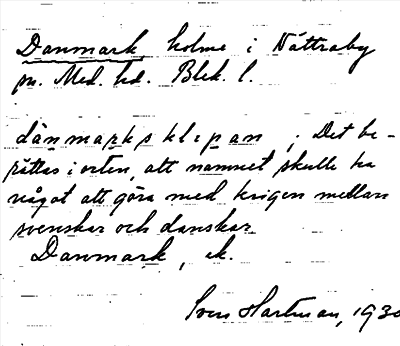 Danmark, holme i Nättraby
sn. Med. hd. Blek. l.
dánmarksklipan; Det be-
rättas i orten, att namnet skulle ha
något att göra med krigen mellan
svenskar och danskar
Danmark, ek.
Sven Hartman, 1930